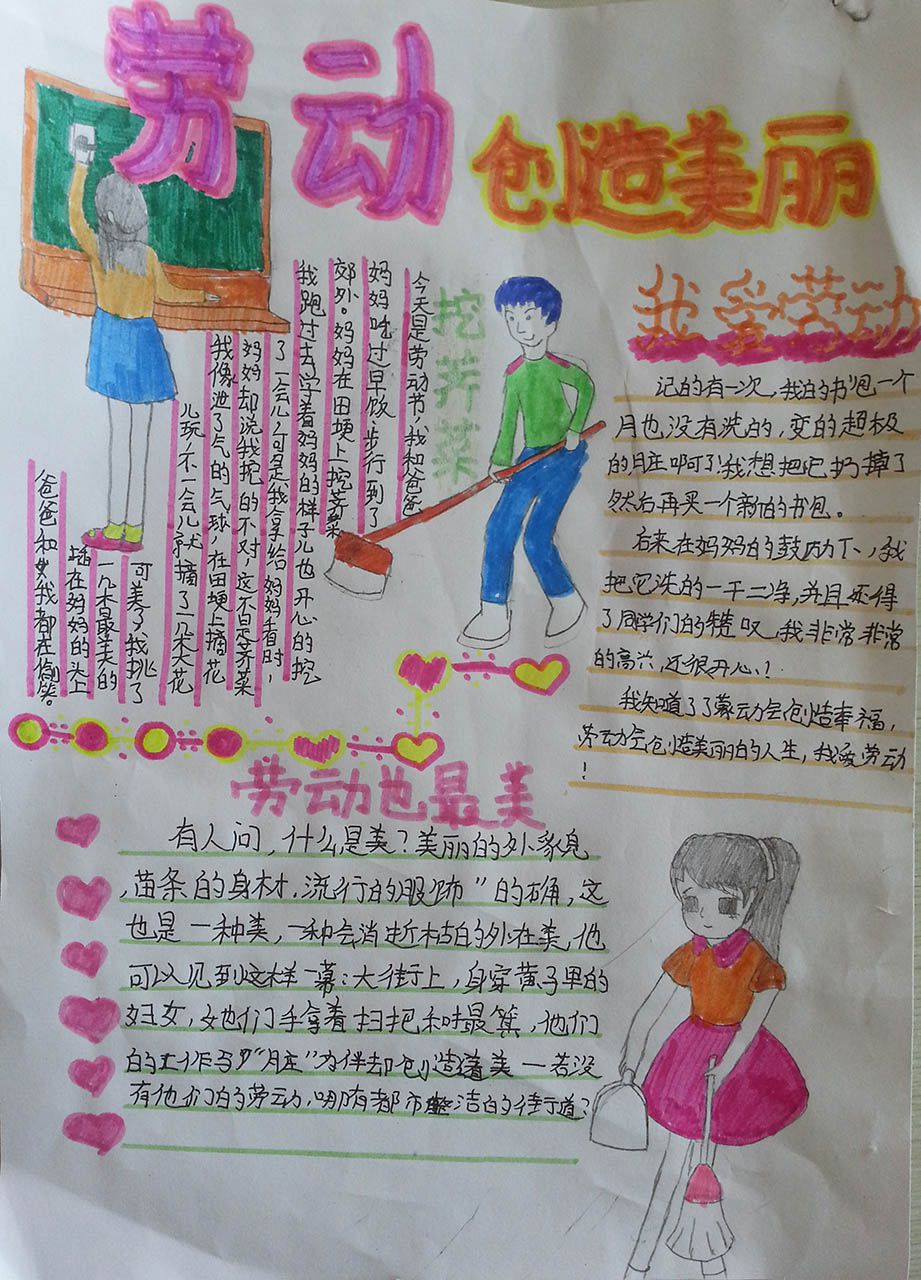 劳动
创造美丽
挖荠菜
今天是劳动节,我和爸爸
妈妈吃过早饭,步行到了
郊外。妈妈在田埂上挖荠菜
我跑过去学着妈妈的样子儿也开心的挖
了一会儿,可是我拿给妈妈看时,
妈妈却说我挖的不对,这不是荠菜
我像泄了气的气球,在田埂上摘花
儿玩,不一会儿就摘了一朵大花
可美了,我挑了
一朵最美的
插在妈妈的头上
爸爸和我都在偷笑。
我爱劳动
记的有一次,我的书包一个
月也没有洗的,变的超极
的脏啊了!我想把它扔掉了
然后再买一个新的书包。
后来在妈妈的鼓励下,我
把它洗的一干二净,并且还得
了同学们的赞叹,我非常非常
的高兴,还很开心!
我知道了了劳动会创造幸福,
劳动会创造美丽的人生,我爱劳动
!
劳动也最美
有人问,什么是美?美丽的外
,苗条的身材.流行的服饰"的确,这
也是一种美,一种会消逝的外在美,他
可以见到这样一幕:大街上,身穿黄
妇女,她们手拿着扫把和,他们
的工作与"脏"为伴却创造着美一若没
有他们的劳动,哪有都市洁的街道?